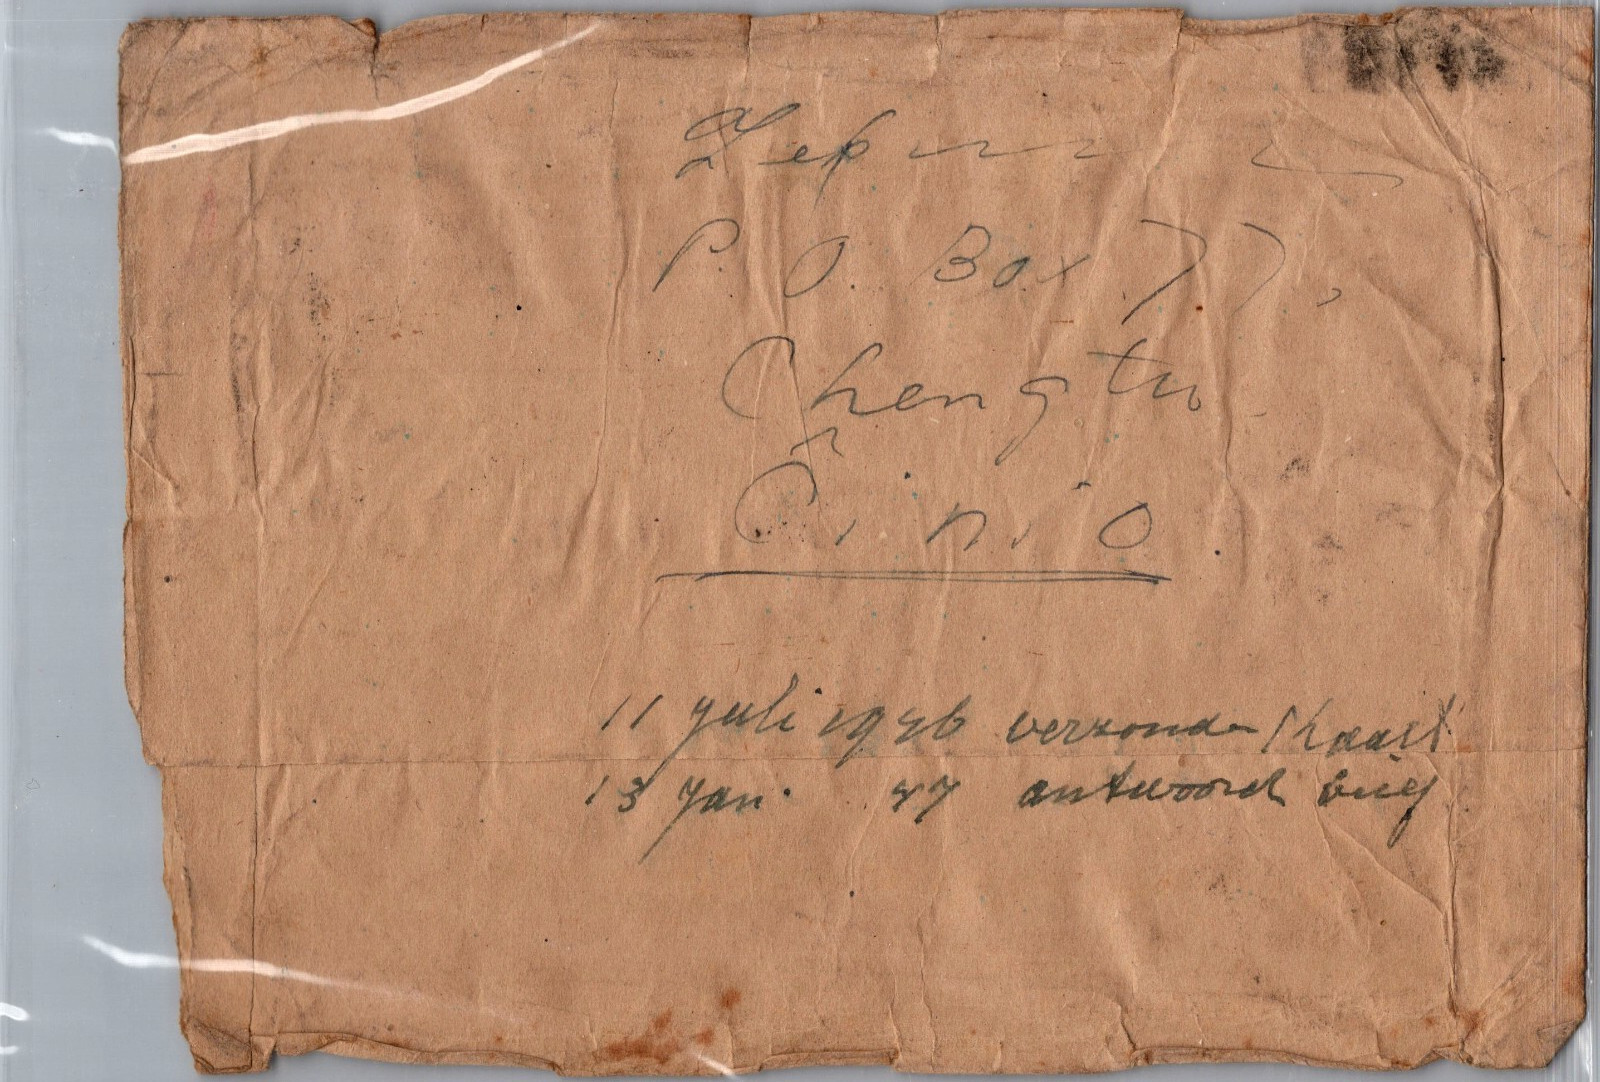 P. O. Box 77,
Chengtu
Ĉinio
11 juli 1946 verzonden kaart
13 Jan. 47 antwoord brief